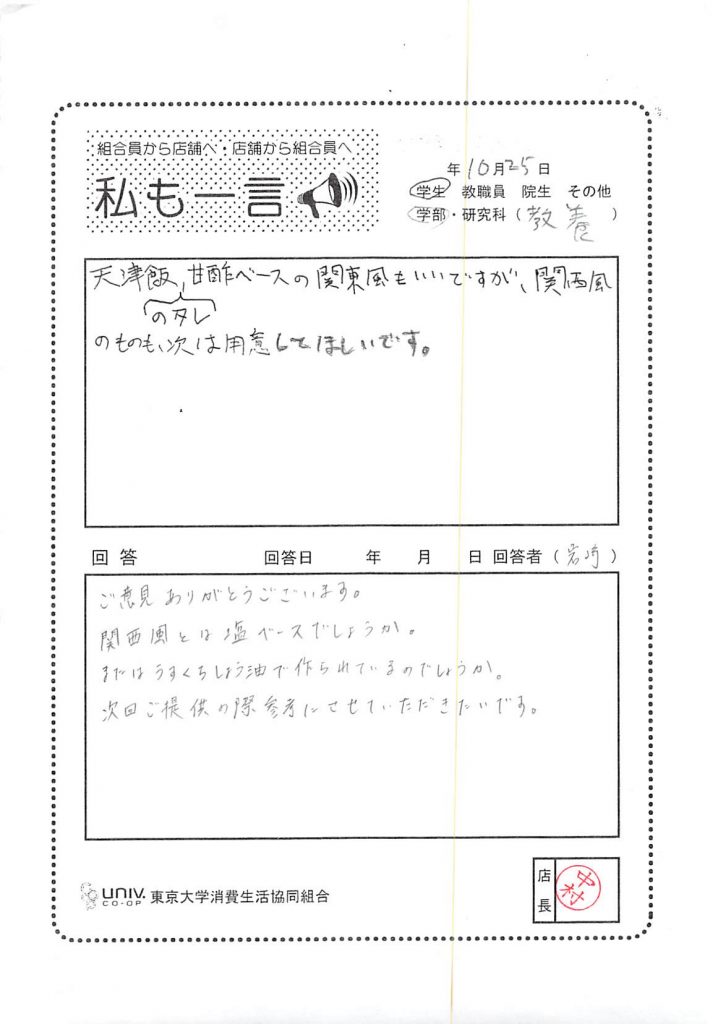 組合員から店舗へ・店舗から組合員へ
私も一言
年10月25日
学生 教職員 院生 その他
学部・研究科(教養)
天津飯、甘酢ベースの関東風もいいですが、関西風
のタレ
のものも、次は用意してほしいです。
回答 回答日 年 月 日 回答者(岩崎)
ご意見ありがとうございます。
関西風とは塩ベースでしょうか。
またはうすくちしょう油で作られているのでしょうか。
次回ご提供の際参考にさせていただきたいです。
UNIV. CO-OP 東京大学消費生活協同組合
店長 中村